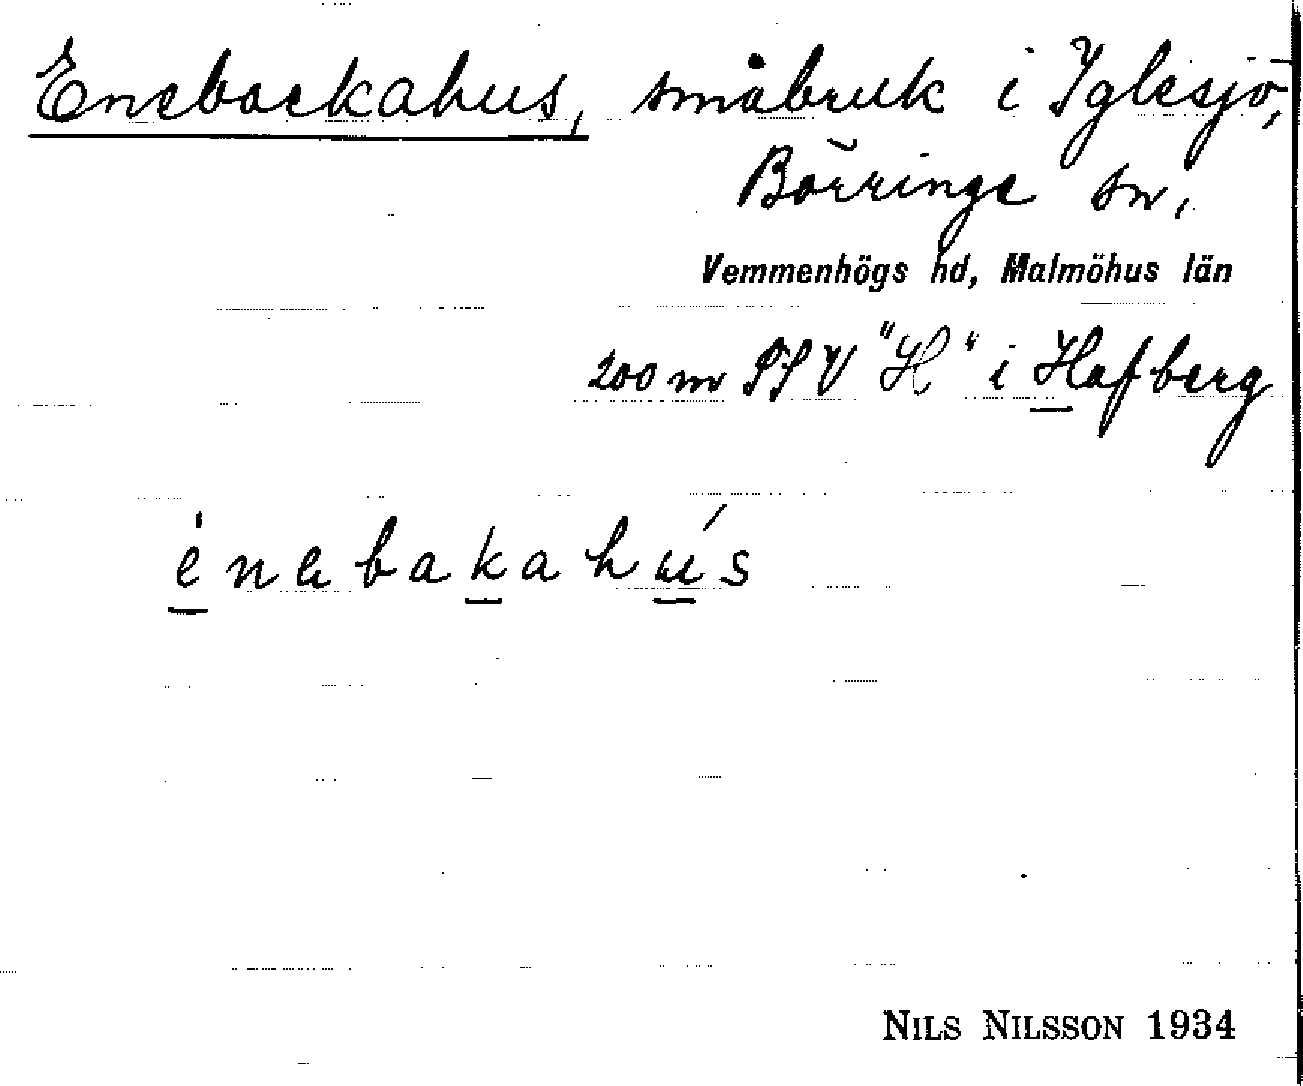 Enebackahus, småbruk i Yglesjö,
Börringe sn,
Vemmenhögs hd, Malmöhus län
200 m SSV "H" i Hafberg
e̱ nebaḵahú̱s
NILS NILSSON 1934